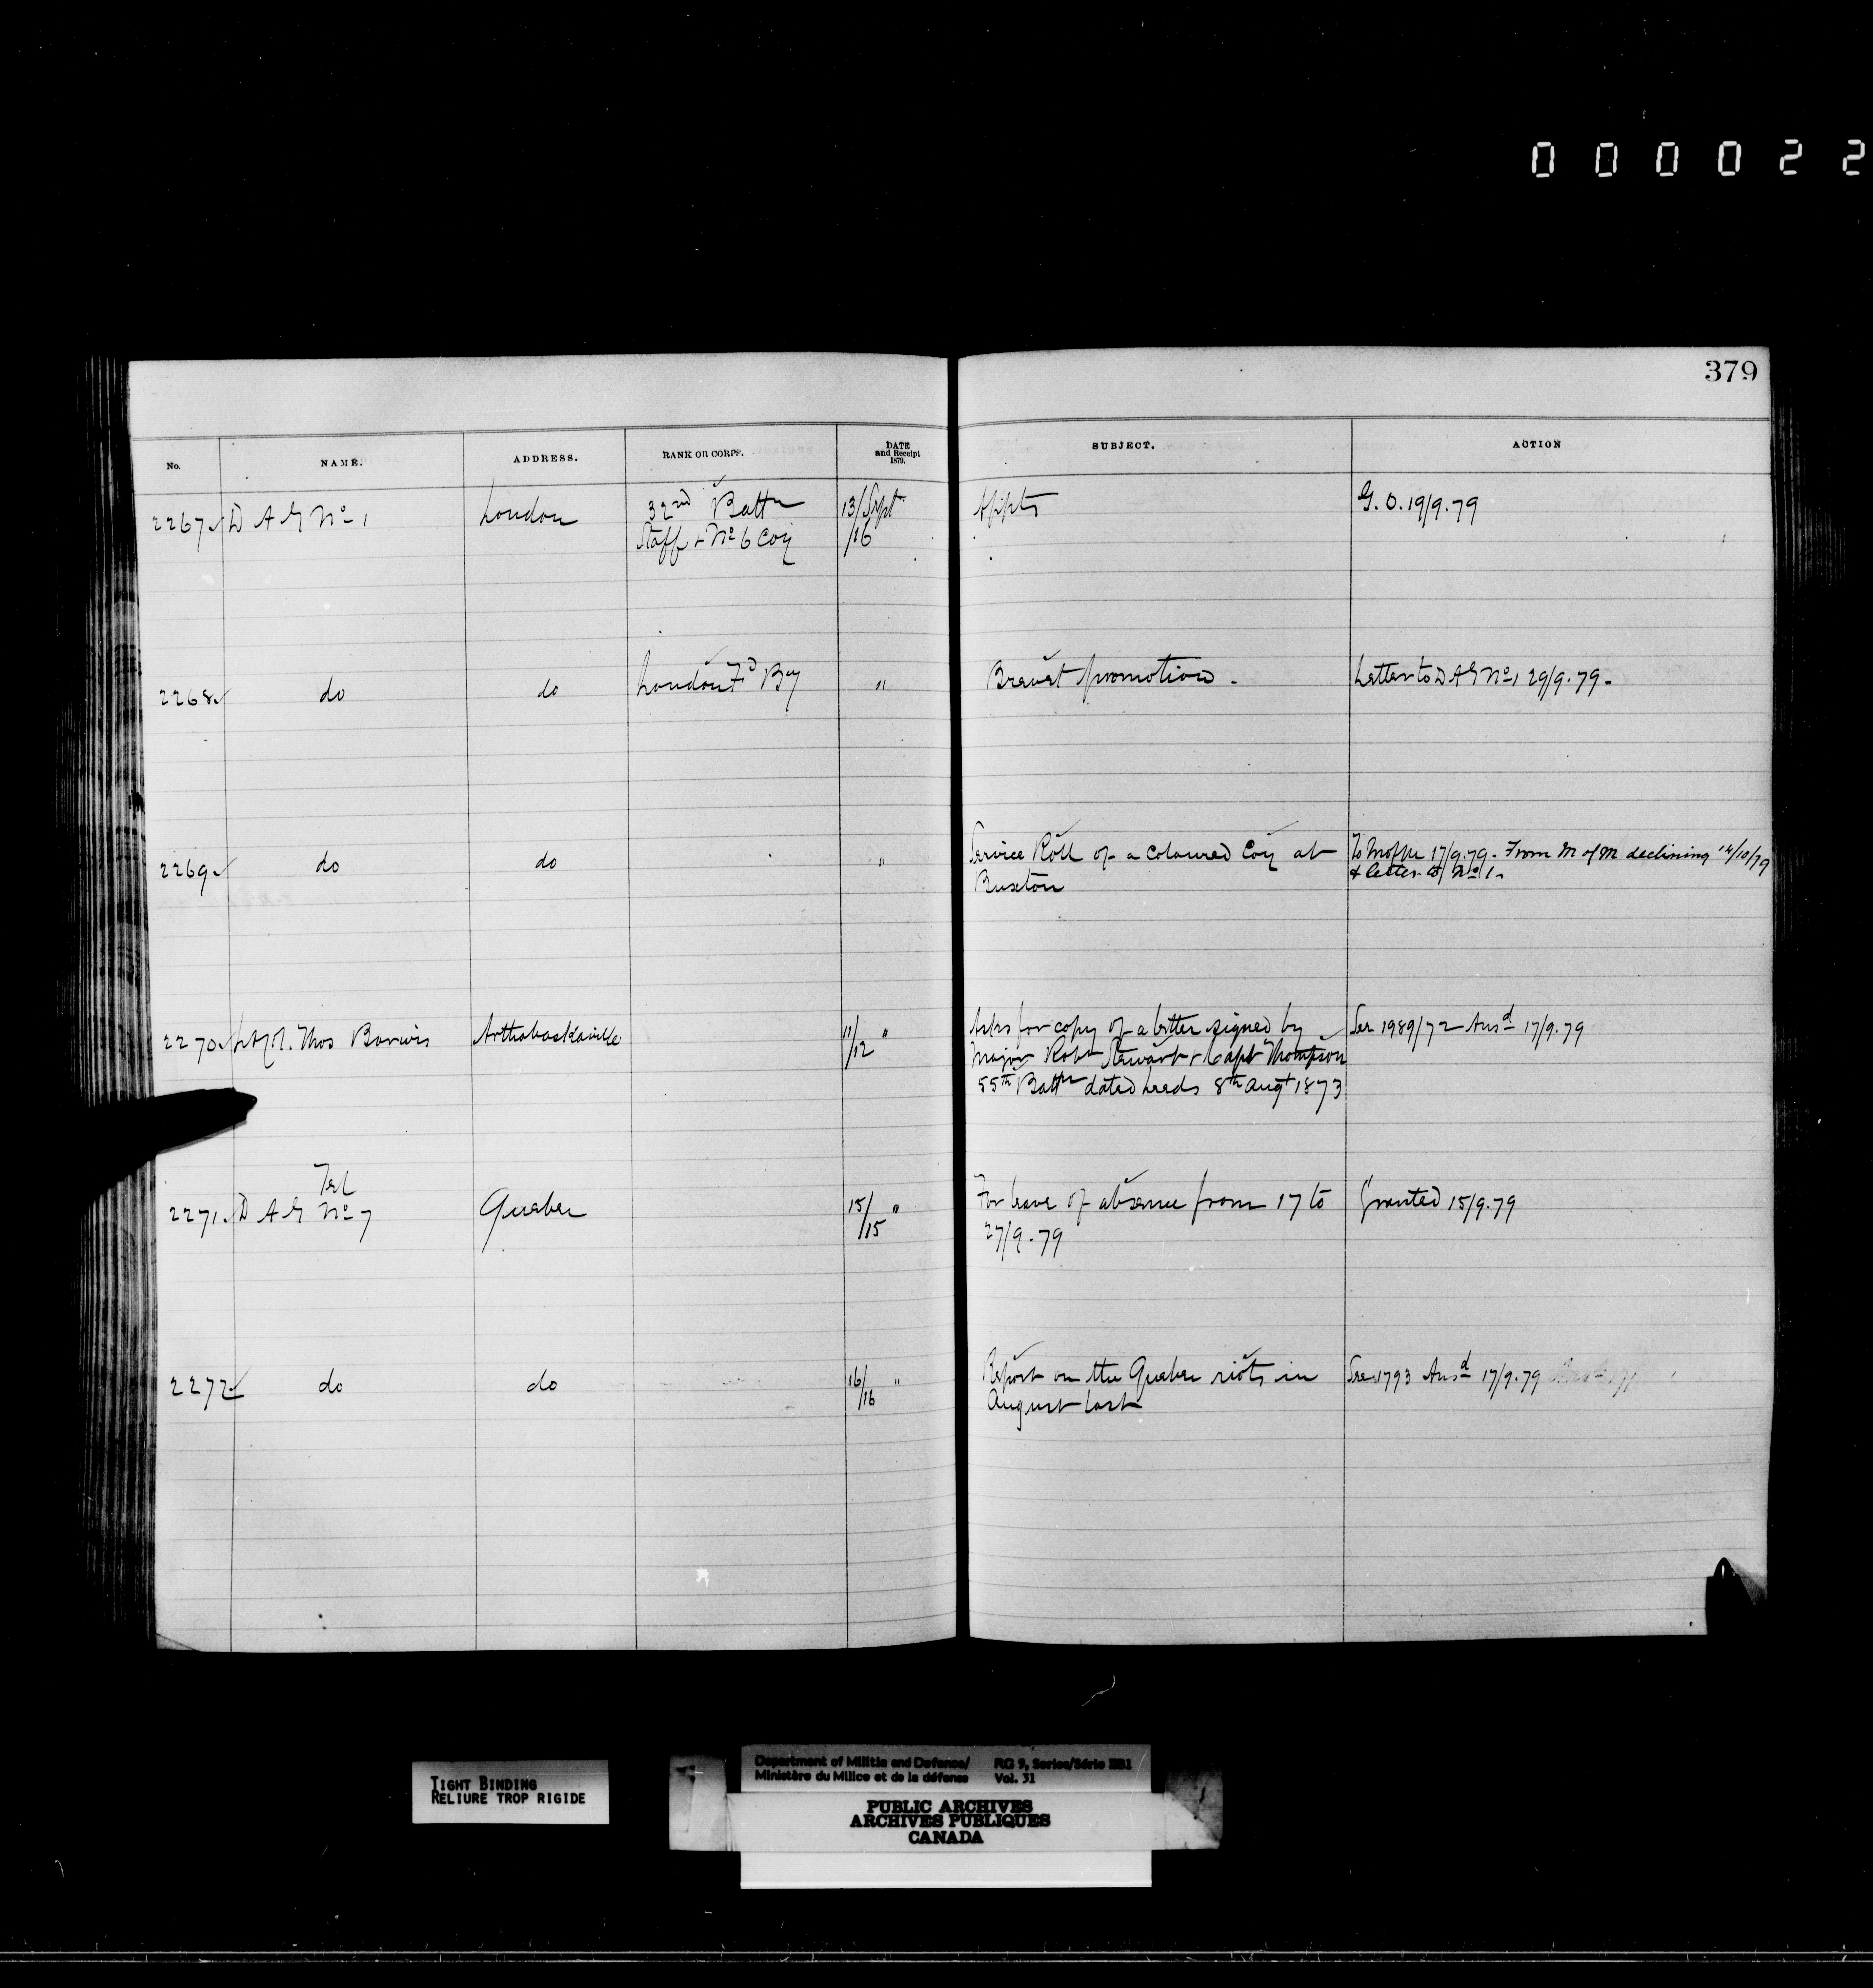 000022
379
No. NAME. ADDRESS. RANK OR CORPS. DATE and Receipt 1879. SUBJECT. ACTION
2267 D A G No 1 London 32nd Battn 13/Sept Appts G. O. 19/9.79
Staff & No 6 Coy /16
2268 do do London Fd By " Brevet promotion - Letter to D A G No 1 29/9.79-
2269 do do " Service Roll of a Coloured Coy at To 17/9.79. From M of M declining 14/10/79
Buxton & letter to No 1-
2270 Lt Col. Thos Barwis Arthabaskaville 11/12 " Asks for copy of a letter signed by See 1989/72 Ansd 17/9.79
Major Robt Stewart & Capt Thompson
55th Battn dated Leeds 8th Augt 1873
Tel
2271 D A G No 7 Quebec 15/15 " For leave of absence from 17 to Granted 15/9.79
27/9.79
2272 do do 16/16 " Report on the Quebec riots in See 1793 Ansd 17/9.79
August last
TIGHT BINDING
RELIURE TROP RIGIDE
Department of Militia and Defence/ RG 9, Series/Série IIB1
Ministère du Milice et de la défense Vol. 31
PUBLIC ARCHIVES
ARCHIVES PUBLIQUES
CANADA